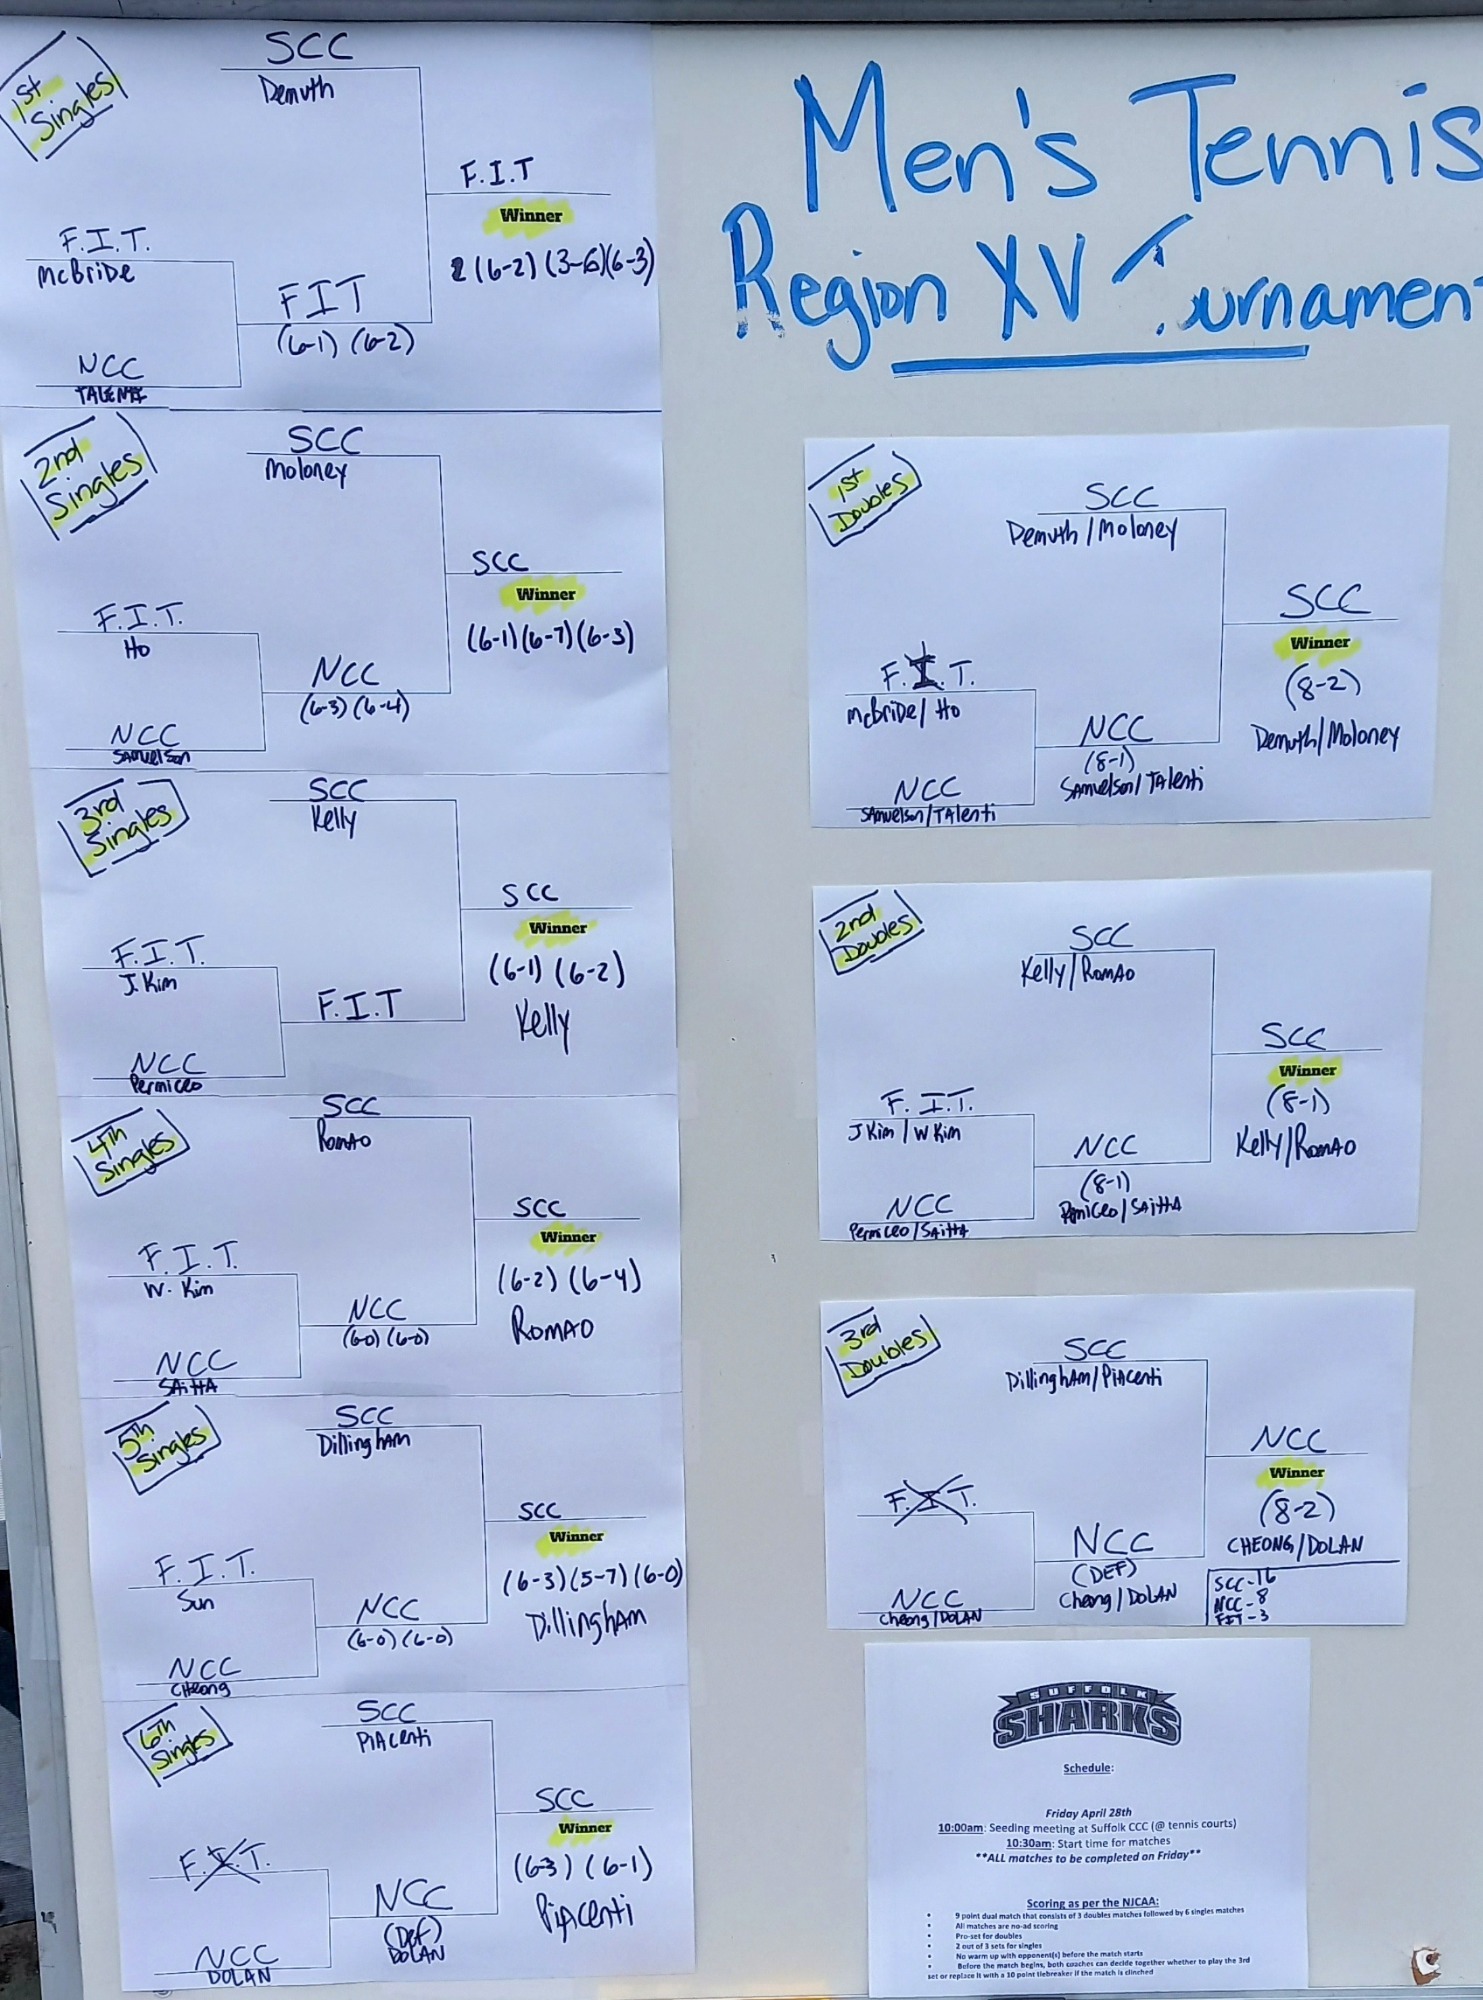 Men's Tennis
Region XV Tournament
1st
Singles
SCC
Demuth
F.I.T
Winner
(6-2) (3-6) (6-3)
F.I.T.
McBride
FIT
(6-1) (6-2)
NCC
2nd
Singles
SCC
Moloney
SCC
Winner
(6-1) (6-7) (6-3)
F.I.T.
Ho
NCC
(6-3) (6-4)
NCC
SAmuelson
3rd
Singles
SCC
Kelly
SCC
Winner
(6-1) (6-2)
Kelly
F.I.T.
J. Kim
F.I.T
NCC
Permiceo
4th
Singles
SCC
RomAo
SCC
Winner
(6-2) (6-4)
RomAO
F.I.T.
W. Kim
NCC
(6-0) (6-0)
NCC
SAittA
5th
Singles
SCC
DillinghAm
SCC
Winner
(6-3) (5-7) (6-0)
DillinghAm
F.I.T.
Sun
NCC
(6-0) (6-0)
NCC
Cheong
6th
Singles
SCC
PiAcenti
SCC
Winner
(6-3) (6-1)
PiAcenti
F.I.T.
NCC
(Def)
DOLAN
NCC
DOLAN
1st
Doubles
SCC
Demuth / Moloney
SCC
Winner
(8-2)
Demuth/Moloney
F.I.T.
McBride/ Ho
NCC
(8-1)
SAmuelson/ TAlenti
NCC
SAmuelson/TAlenti
2nd
Doubles
SCC
Kelly/RomAo
SCC
Winner
(8-1)
Kelly/RomAO
F.I.T.
J Kim / W Kim
NCC
(8-1)
Permiceo/SAittA
NCC
Permiceo/SAittA
3rd
Doubles
SCC
DillinghAm/PiAcenti
NCC
Winner
(8-2)
CHEONG/DOLAN
F.I.T.
NCC
(DEF)
Cheong/DOLAN
NCC
Cheong/DOLAN
SCC-16
NCC-8
FIT-3
SUFFOLK
SHARKS
Schedule:
Friday April 28th
10:00am: Seeding meeting at Suffolk CCC (@ tennis courts)
10:30am: Start time for matches
**ALL matches to be completed on Friday**
Scoring as per the NJCAA:
• 9 point dual match that consists of 3 doubles matches followed by 6 singles matches
• All matches are no-ad scoring
• Pro-set for doubles
• 2 out of 3 sets for singles
• No warm up with opponent(s) before the match starts
• Before the match begins, both coaches can decide together whether to play the 3rd
set or replace it with a 10 point tiebreaker if the match is clinched